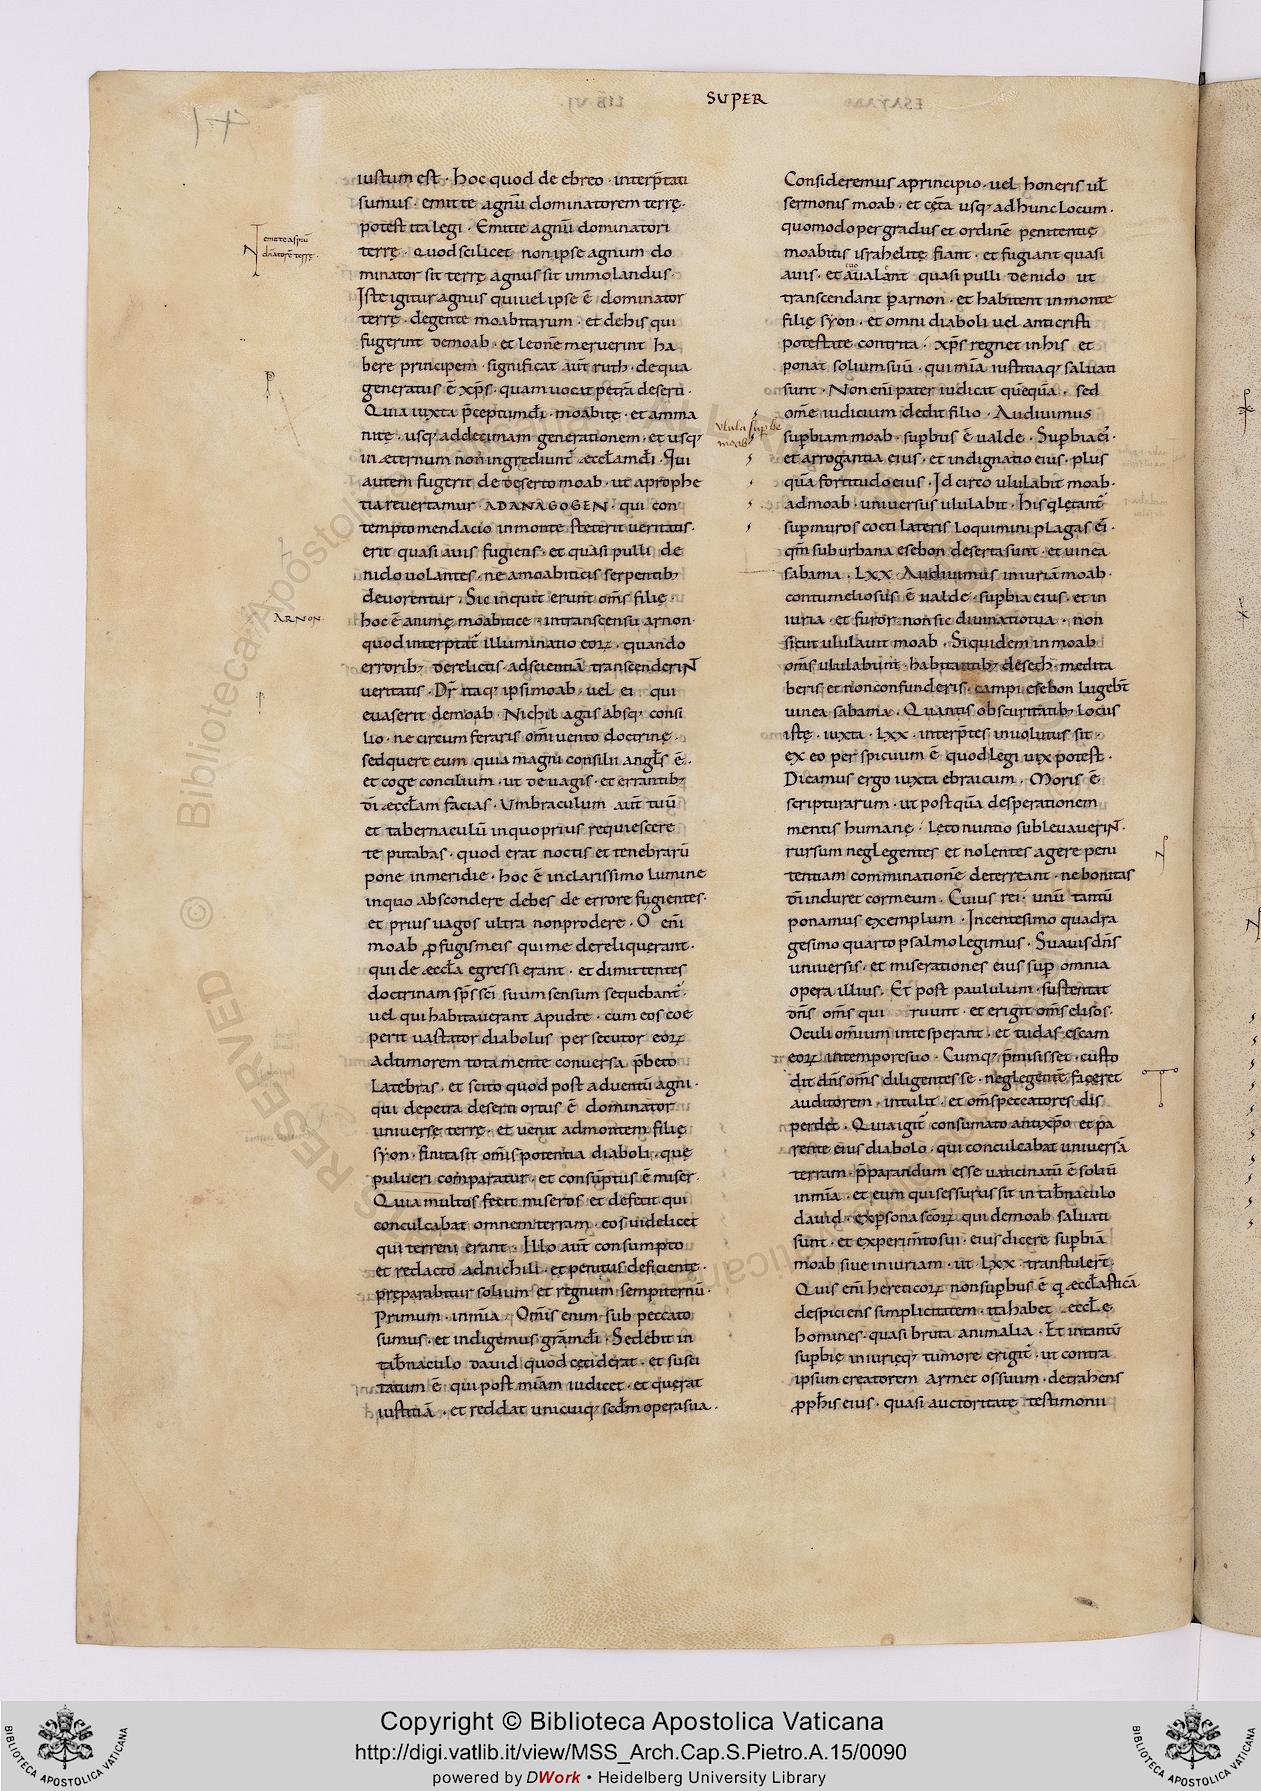 SUPER
iustum est · hoc quod de ebreo · interp̄tati
sumus · emitte agnū dominatorem terrę ·
potest ita legi · Emitte agnū dominatori
terrę · quod scilicet non ipse agnum do
minator sit terrę agnus sit immolandus ·
Iste igitur agnus qui uel ipse ē dominator
terrę · degente moabitarum · et de his qui
fugerunt de moab · et leonē meruerint ha
bere principem · significat aūt ruth · de qua
generatus ē xp̄s · quam uocat petrā deserti ·
Quia iuxta p̄ceptum d̄i · moabitę · et amma
nitę · usq; ad decimam generationem · et usq;
in æternum non ingrediunt̄ æccłam d̄i · Qui
autem fugerit de deserto moab · ut a prophe
tia reuertamur · AD ANAGOGEN · qui con
tempto mendacio in monte steterit ueritatis ·
erit quasi auis fugiens · et quasi pulli de
nido uolantes · ne a moabiticis serpentib;
deuorentur · Sic inquit erunt om̄s filię ·
hoc ē animę moabitice · in transcensu arnon ·
quod interp̄tat̄ illuminatio eoꝝ · quando
errorib; derelictis · ad scientiā transcenderiNT
ueritatis · Dr̄ itaq; ipsi moab · uel ei qui
euaserit de moab · Nichil agas absq; consi
lio · ne circum feraris om̄i uento doctrinę ·
sed quere eum quia magni consilii angl̄s ē ·
et coge concilium · ut de uagis · et errantib;
d̄i æccłam facias · Umbraculum aūt tuū
et tabernaculū in quo prius requiescere
te putabas · quod erat noctis et tenebrarū
pone in meridie · hoc ē in clarissimo lumine
in quo abscondere debes de errore fugientes ·
et prius uagos ultra non prodere · O eni
moab ꝓfugis meis qui me dereliquerant ·
qui de æccła egressi erant · et dimittentes
doctrinam sp̄s sc̄i suum sensum sequebant̄ ·
uel qui habitauerant apud te · cum eos coe
perit uastator diabolus persecutor eoꝝ
ad timorem tota mente conuersa p̄beto
latebras · et scito quod post aduentū agni ·
qui de petra deserti ortus ē dominator
uniuersę terrę · et uenit ad montem filię
syon · finita sit om̄is potentia diaboli · quę
pulueri comparatur · et consūptus ē miser ·
Quia multos fecit miseros et defecit qui
conculcabat omnem terram · eos uidelicet
qui terreni erant · Illo aūt consumpto
et redacto ad nichili · et penitus deficiente ·
pręparabitur solium et regnum sempiternū ·
Primum · in mīa · Om̄is enim sub peccato
sumus · et indigemus grām d̄i · Sedebit in
tab̄naculo dauid quod ceciderat · et susci
tatum ē qui post mīam iudicet · et querat
iustitiā · et reddat unicuiq; sed̄m opera sua ·
emitte agnū
dn̄atorē terrę ·
ARNON ·
Consideremus a principio · uel honeris uł
sermonis moab · et cęta usq; ad hunc locum ·
quomodo per gradus et ordinē penitentię
moabitis israhelitę fiant · et fugiant quasi
auis · et auualant quasi pulli de nido ut
transcendant p̄ arnon · et habitent in monte
filię syon · et omni diaboli uel anticristi
potestate contrita · xp̄s regnet in his et
ponat solium suū · qui mīa iustitiaq; saluati
sunt · Non eni pater iudicat quēquā · sed
om̄e iudicium dedit filio · Audiuimus
sup̄biam moab · sup̄bus ē ualde · Sup̄bia ei ·
et arrogantia eius · et indignatio eius · plus
quā fortitudo eius · Id circo ululabit moab ·
ad moab · uniuersus ululabit · his q̄ lętant̄
sup̄ muros cocti lateris loquimini plagas ei ·
qm̄ suburbana esebon deserta sunt · et uinea
sabama · LXX · Audiuimus iniuriā moab ·
contumeliosus ē ualde · sup̄bia eius · et in
iuria · et furor · non sic diuinatio tua · non
sicut ululauit moab · Siquidem in moab
om̄s ululabunt · habitantib; deseth · medita
beris et non confunderis · campi esebon lugebt̄
uinea sabama · Quantis obscuritatib; locus
iste · iuxta · LXX · interp̄tes inuolutus sit ·
ex eo perspicuum ē quod legi uix potest ·
Dicamus ergo iuxta ebraicum · Moris ē
scripturarum · ut postquā desperationem
mentis humanę · lęto nuntio subleuaveriNT ·
rursum neglegentes et nolentes agere peni
tentiam comminationē deterreant · ne bonitas
d̄i induret cor meum · Cuius rei · unū tantū
ponamus exemplum · In centesimo quadra
gesimo quarto psalmo legimus · Suauis dn̄s
uniuersis · et miserationes eius sup̄ omnia
opera illius · Et post paululum · sustentat
dn̄s om̄s qui ruunt · et erigit om̄s elisos ·
Oculi om̄ium in te sperant · et tu das escam
eoꝝ in tempor tuo · Cumq; p̄misisset · custo
dit dn̄s om̄s diligentes se · neglegentē faceret
auditorem · intulit · et om̄s peccatores dis
perdet · Quia igit̄ consumato antixp̄o et pa
rente eius diabolo · qui conculcabat uniuersā
terram · p̄parandum esse uaticinatū ē soliū
in mīa · et eum qui sessurus sit in tab̄naculo
dauid · ex p̄sona sc̄oꝝ qui de moab saluati
sunt · et experim̄to sui · eius dicere sup̄biā
moab siue iniuriam · ut · LXX · transtulert̄ ·
Quis eni hereticoꝝ non sup̄bus ē q æccłasticā
despiciens simplicitatem · ita habet æccłę
homines · quasi bruta animalia · Et in tantū
sup̄bię iniurięq; tumore erigit̄ · ut contra
ipsum creatorem armet os suum · detrahens
ꝓph̄is eius · quasi auctoritate testimonii
ulula sup̄be
moab
Copyright © Biblioteca Apostolica Vaticana
http://digi.vatlib.it/view/MSS_Arch.Cap.S.Pietro.A.15/0090
powered by DWork • Heidelberg University Library
BIBLIOTECA APOSTOLICA VATICANA
BIBLIOTECA APOSTOLICA VATICANA